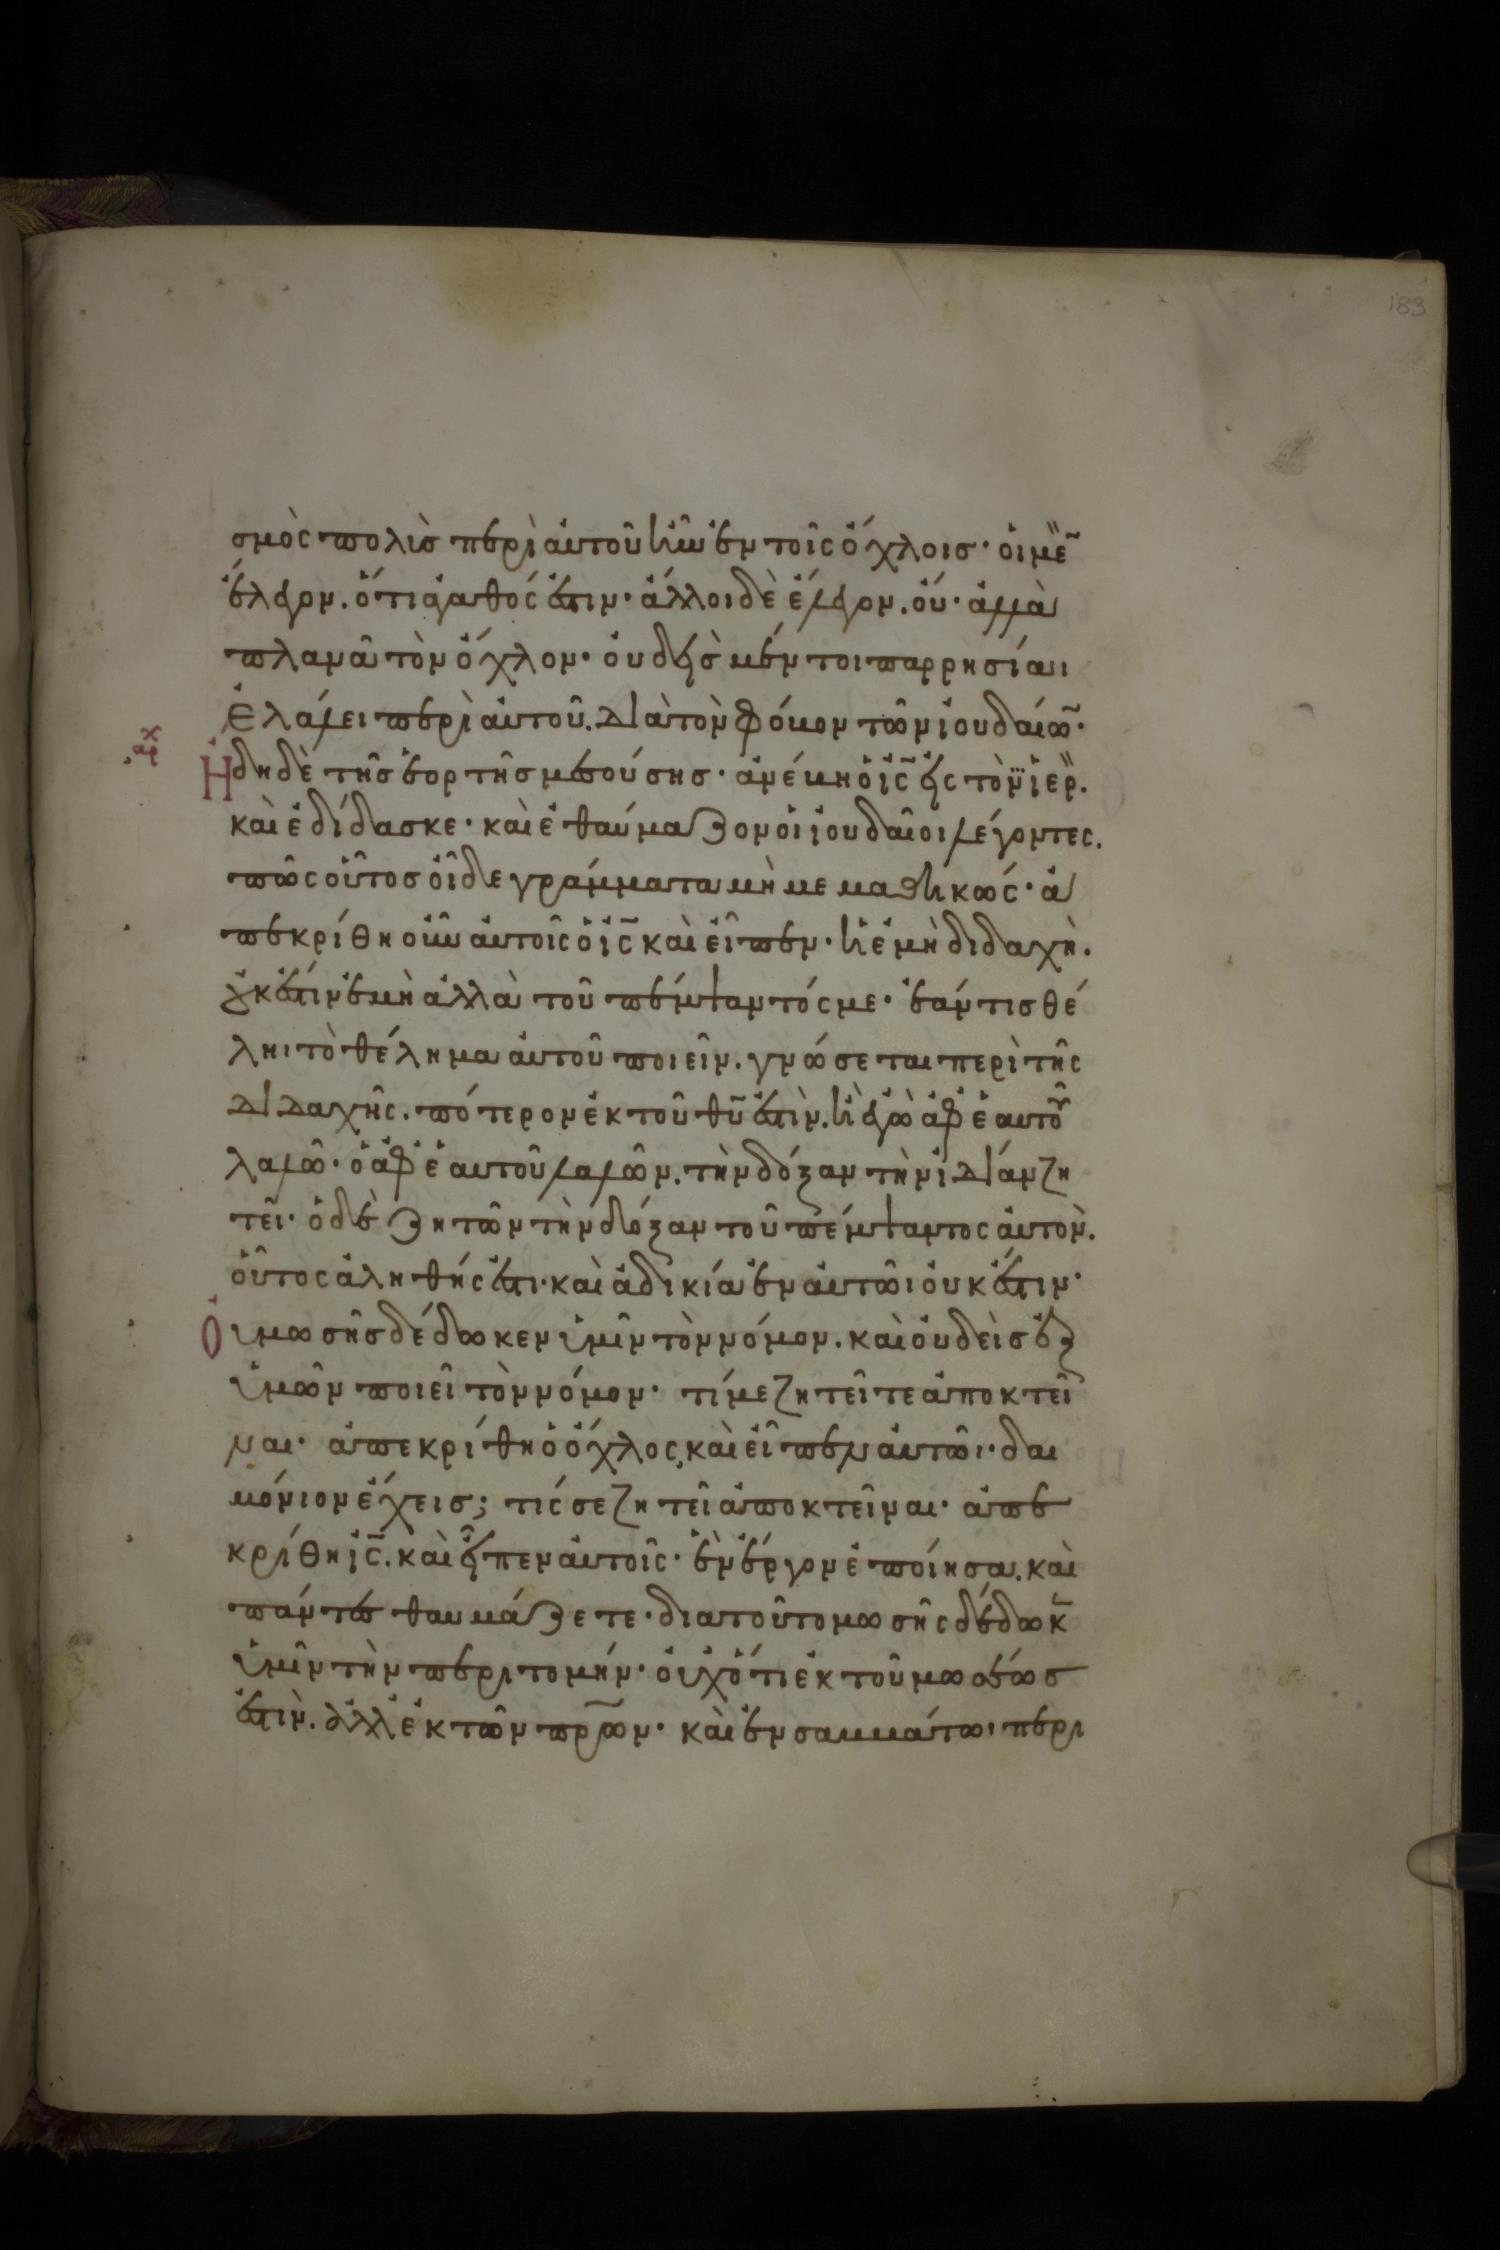 183
σμὸς πολὺσ περὶ ἀυτοῦ ἦν ἐν τοῖς ὄχλοισ· οἱ με̃
ἔλεγον. ὅτι ἀγαθός ἐστιν· ἄλλοι δὲ ἔλεγον. οὔ· ἀλλὰ
πλανᾶ τὸν ὄχλον· ὀυδεὶσ μέντοι παρρησίαι
ἐλάλει περὶ ἀυτοῦ. διὰ τὸν φόβον τῶν ἰουδαίω̃·
αρχ
Ἤδη δὲ τῆσ ἑορτῆσ μεσούσησ· ἀνέβη ὁ ἰς̃ εἰς τὸ ἱερ̀.
καὶ ἐδίδασκε· καὶ ἐθαύμαζον οἱ ἰουδαῖοι λέγοντες.
πῶς οὗτοσ οἶδε γράμματα μὴ μεμαθηκώς· ἀ
πεκρίθη οὖν ἀυτοῖς ὁ ἰς̃ καὶ εἶπεν· ἡ ἐμὴ διδαχὴ.
οὐκ ἔστιν ἐμὴ ἀλλὰ τοῦ πέμψαντός με· ἐάν τισ θέ
ληι τὸ θέλημα ἀυτοῦ ποιεῖν. γνώσεται περὶ τῆς
διδαχῆς. πότερον ἐκ τοῦ θυ̃ ἐστὶν. ἢ ἐγὼ ἀφ ἑαυτοῦ
λαλῶ· ὁ ἀφ ἑαυτοῦ λαλῶν. τὴν δόξαν τὴν ἰδίαν ζη
τεῖ· ὁ δὲ ζητῶν τὴν δόξαν τοῦ πέμψαντος ἀυτὸν.
οὗτος ἀληθής ἐστι· καὶ ἀδικία ἐν ἀυτῶι ὀυκ ἔστιν·
Ὀυ μωσῆσ δέδωκεν ὑμῖν τὸν νόμον. καὶ ὀυδεὶσ ἐξ
ὑμῶν ποιεῖ τὸν νόμον· τί με ζητεῖτε ἀποκτεῖ
ναι· ἀπεκρίθη ὁ ὄχλος, καὶ εἶπεν ἀυτῶι· δαι
μόνιον ἔχεισ; τίς σε ζητεῖ ἀποκτεῖναι· ἀπε
κρίθη ἰς̃. καὶ εἶπεν ἀυτοῖς· ἓν ἔργον ἐποίησα. καὶ
πάντες θαυμάζετε· διατοῦτο μωσῆς δέδωκ̃
ὑμῖν τὴν περιτομήν· ὀυχ ὅτι ἐκ τοῦ μωσέωσ
ἐστὶν. ἀλλ ἐκ τῶν πρ̃ων· καὶ ἐν σαββάτω· περι